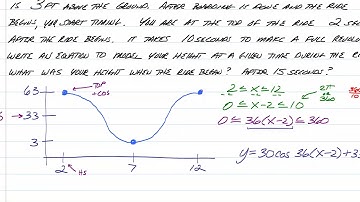 IS 3 FT ABOVE THE GROUND. AFTER BOARDING IS DONE AND THE RIDE
BEGINS, YOU START TIMING. YOU ARE AT THE TOP OF THE RIDE 2 SE
AFTER THE RIDE BEGINS. IT TAKES 10 SECONDS TO MAKE A FULL REVOLU
WRITE AN EQUATION TO MODEL YOUR HEIGHT AT A GIVEN TIME DURING THE RI
WHAT WAS YOUR HEIGHT WHEN THE RIDE BEGAN? AFTER 15 SECONDS?
TOP
+COS
63
33
3
2 7 12
HS
2 ≤ X ≤ 12
0 ≤ X-2 ≤ 10
0 ≤ 36(X-2) ≤ 360
2π
OR
360
360
10
y = 30cos 36(X-2)+3